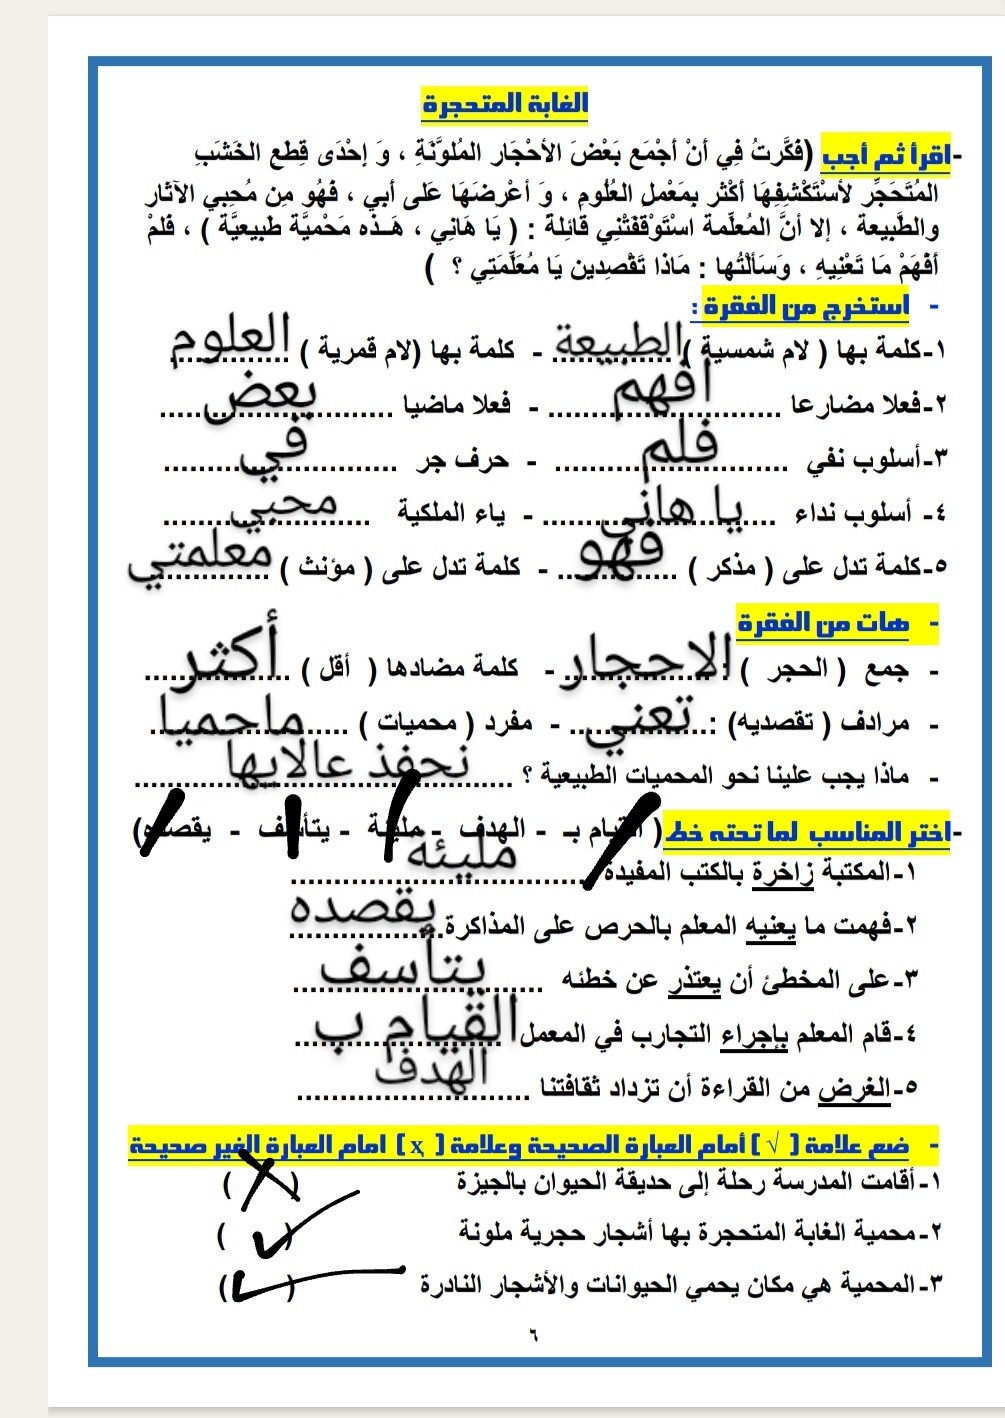 الغابة المتحجرة
-اقرأ ثم أجب (فَكَّرتُ فِي أنْ أجْمَع بَعْضَ الأحْجَار المُلوَّنَةِ ، وَ إحْدَى قِطَع الخَشَبِ
المُتَحَجِّر لأسْتَكْشِفِهَا أكْثر بِمَعْملِ العُلُومِ ، وَ أعْرضَهَا عَلى أبي ، فَهُو مِن مُحِبي الآثار
والطَّبِيعة ، إلا أنَّ المُعلِّمة اسْتَوْقفَتْنِي قائِلةً : ( يَا هَانِي ، هَـذه مَحْمِيَّة طَبِيعيَّة ) ، فَلمْ
أفْهَمْ مَا تَعْنِيهِ ، وَسَألْتُها : مَاذا تَقْصِدين يَا مُعَلِّمَتِي ؟ )
- استخرج من الفقرة :
١-كلمة بها ( لام شمسية ) الطبيعة - كلمة بها (لام قمرية ) العلوم
٢-فعلا مضارعا أفهم - فعلا ماضيا بعض
٣-أسلوب نفي فلم - حرف جر في
٤- أسلوب نداء يا هاني - ياء الملكية محبي
٥-كلمة تدل على ( مذكر ) فهو - كلمة تدل على ( مؤنث ) معلمتي
- هات من الفقرة
- جمع ( الحجر ) : الاحجار - كلمة مضادها ( أقل ) أكثر
- مرادف ( تقصديه) : تعني - مفرد ( محميات ) ماحميا
- ماذا يجب علينا نحو المحميات الطبيعية ؟ نحفذ عالايها
-اختر المناسب لما تحته خط ( القيام بـ - الهدف - مليئة - يتأسف - يقصده)
١-المكتبة زاخرة بالكتب المفيدة مليئة
٢-فهمت ما يعنيه المعلم بالحرص على المذاكرة يقصده
٣-على المخطئ أن يعتذر عن خطئه يتأسف
٤-قام المعلم بإجراء التجارب في المعمل القيام ب
٥-الغرض من القراءة أن تزداد ثقافتنا الهدف
- ضع علامة ( √ ) أمام العبارة الصحيحة وعلامة ( x ) امام العبارة الغير صحيحة
١-أقامت المدرسة رحلة إلى حديقة الحيوان بالجيزة ( X )
٢-محمية الغابة المتحجرة بها أشجار حجرية ملونة ( ✓ )
٣-المحمية هي مكان يحمي الحيوانات والأشجار النادرة ( ✓ )
٦